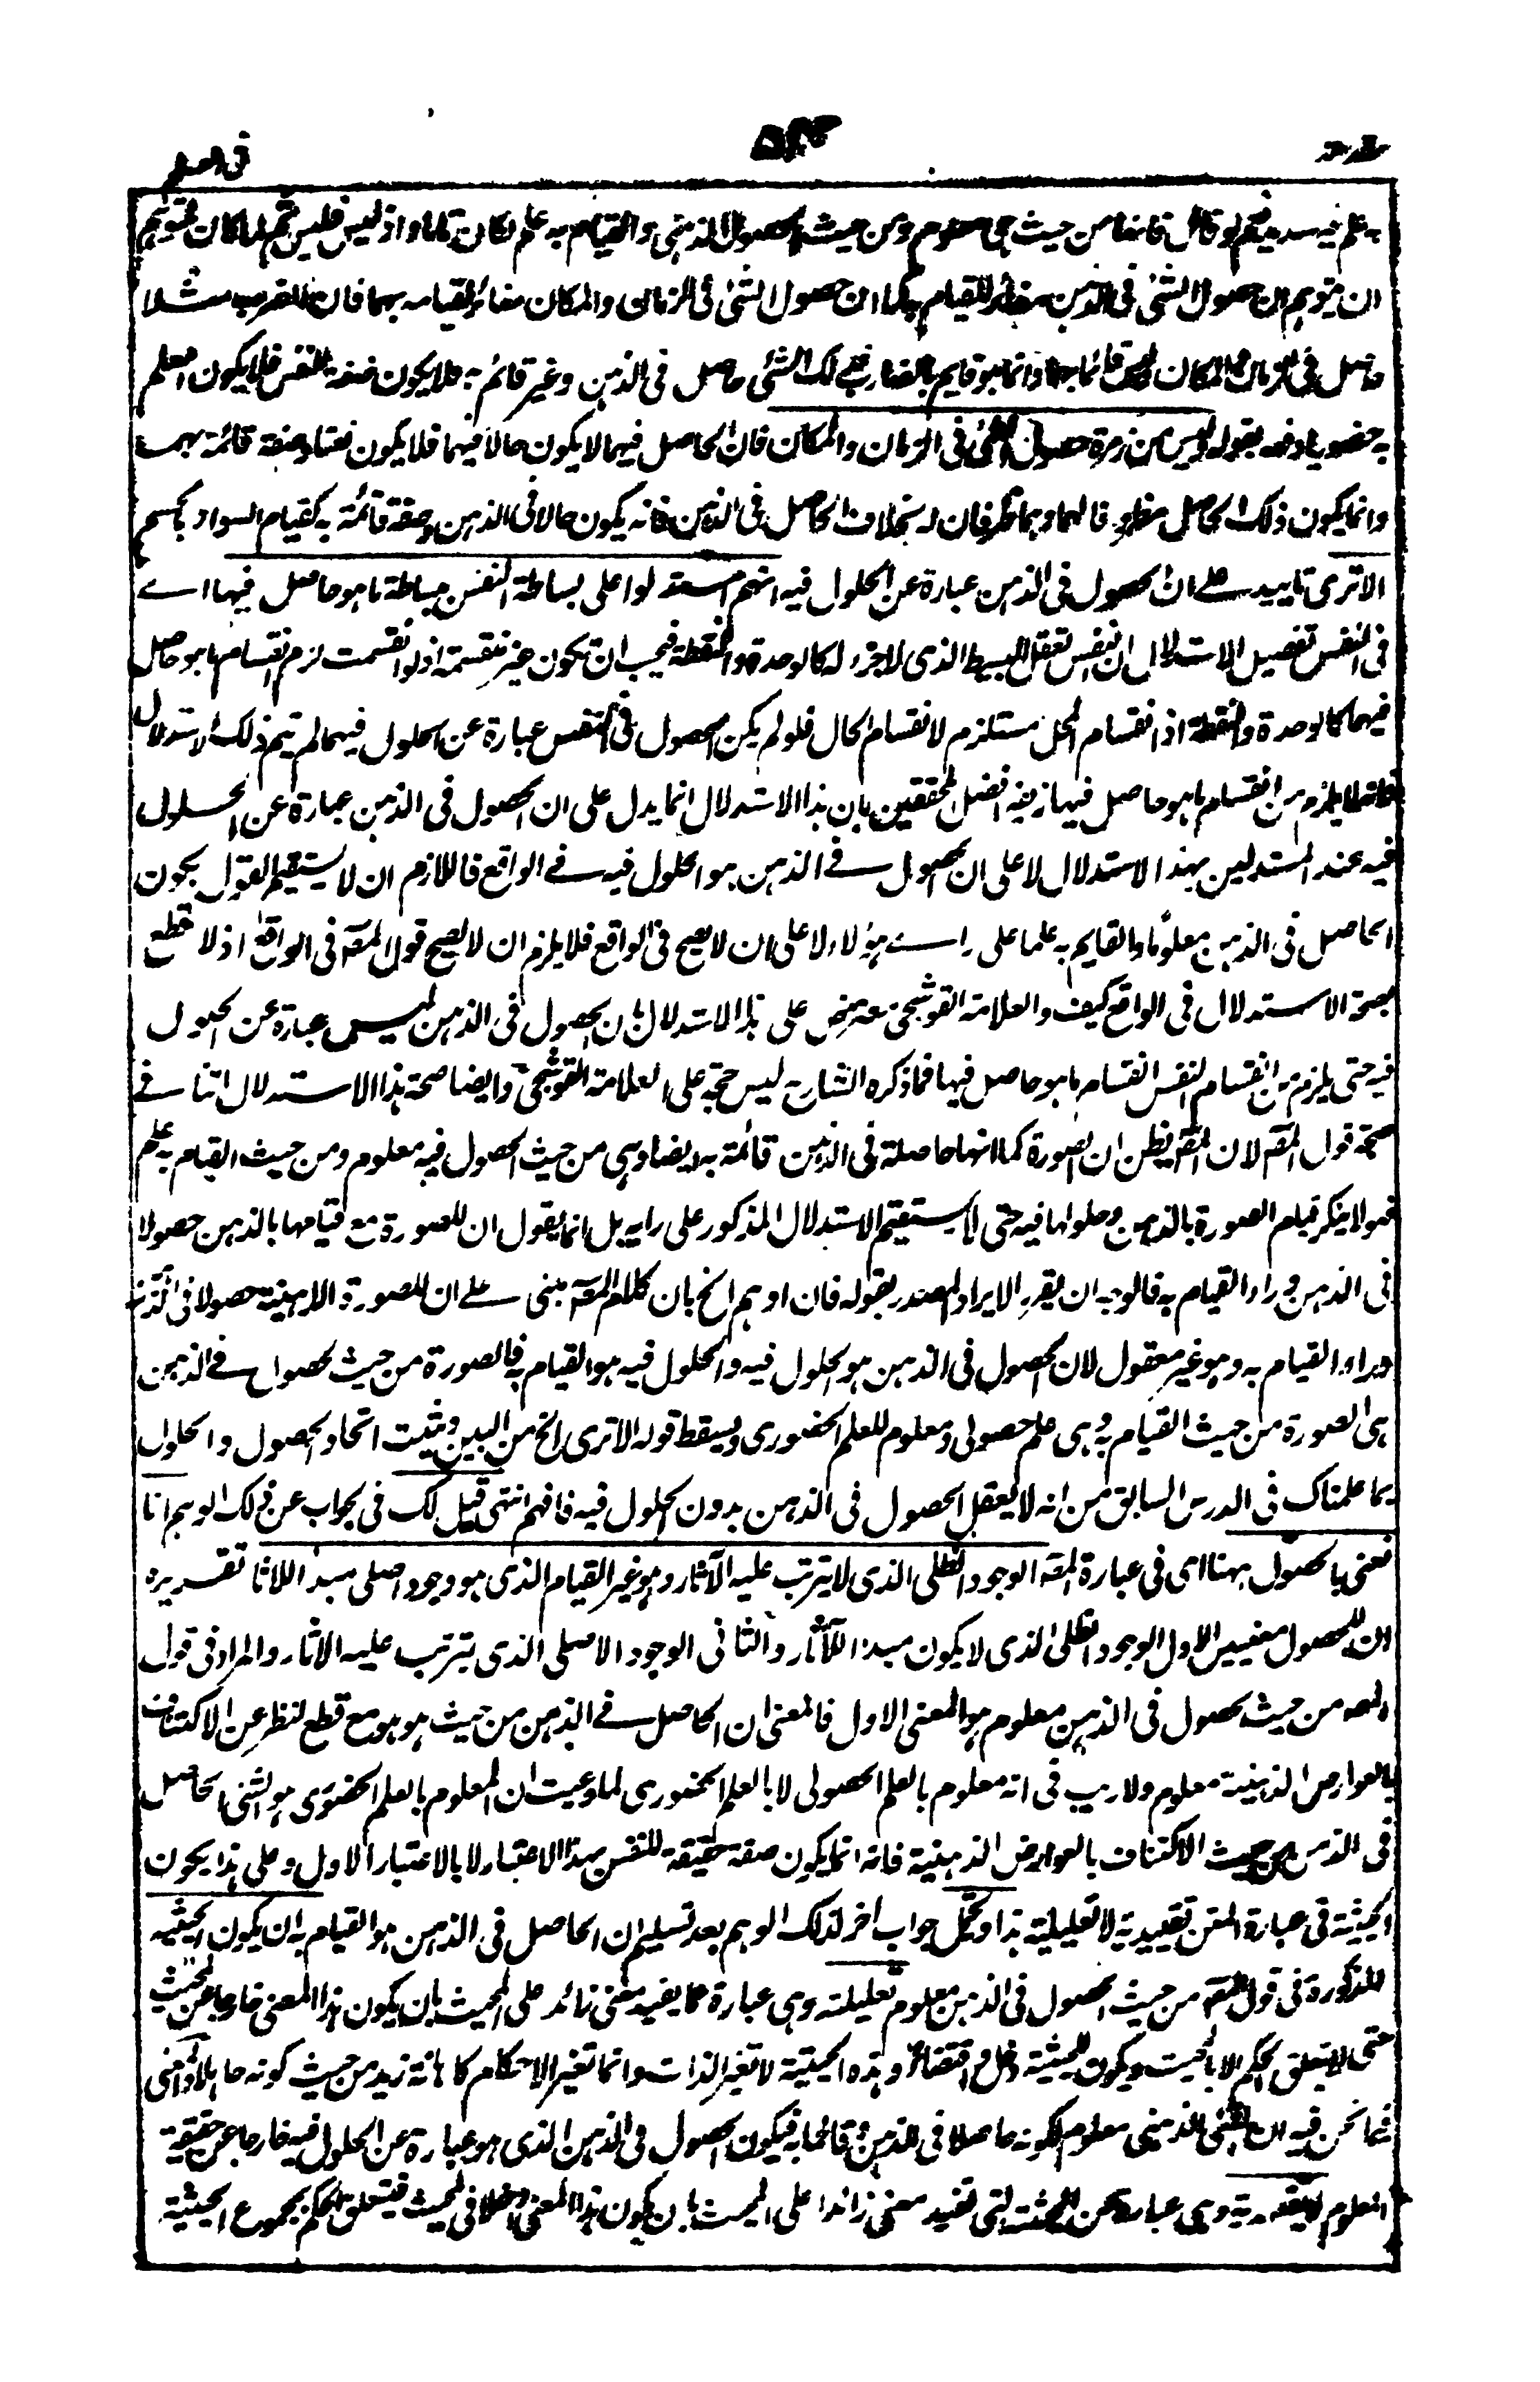 مقدمة
في العلم
به علم فيه سديد فلو قال فانها من حيث هي معلوم ومن حيث الحصول الذهني والقيام به علم لكان تاما واذ ليس فليس ثم لما كان لمتوهم
ان يتوهم ان حصول الشئ في الذهن مغائر للقيام به كما ان حصول الشئ في الزمان والمكان مغائر لقيامه بهما فان الضرب مثلا
حاصل في الزمان والمكان وليس قائما بهما وانما هو قايم بالضارب فيجے لك الشئ حاصل في الذهن وغير قائم به فلا يكون صفة للنفس فلا يكون العلم
به حضوريا دفعه بقوله وليس من زمرة حصول الشئ في الزمان والمكان فان الحاصل فيهما لا يكون حالا فيهما فلا يكون نعتا وصفة قائمة بهما
وانما يكون ذلك الحاصل مظروفا لهما وهما ظرفان له بخلاف الحاصل في الذهن فانه يكون حالا في الذهن وصفة قائمة به كقيام السواد بالجسم
الا ترى تاييد على ان الحصول في الذهن عبارة عن الحلول فيه انهم استدلوا على بساطة النفس ببساطة ما هو حاصل فيها اے
في النفس تفصيل الاستدلال ان النفس تعقل البسيط الذى لا جزء له كالوحدة والنقطة فيجب ان يكون غير منقسمة اذ لو انقسمت لزم انقسام ما هو حاصل
فيها كالوحدة والنقطة اذ انقسام المحل مستلزم لانقسام الحال فلو لم يكن الحصول في النفس عبارة عن الحلول فيها لم يتم ذلك الاستدلال
فانه لا يلزم من انقسامها انقسام ما هو حاصل فيها زيفه افضل المحققين بان هذا الاستدلال انما يدل على ان الحصول في الذهن عبارة عن الحلول
فيه عند المستدلين بهذا الاستدلال لا على ان الحصول في الذهن هو الحلول فيه في الواقع فاللازم ان لا يستقيم القول بكون
الحاصل في الذهن معلوما والقايم به علما على راے هؤلاء لا على ان لا يصح في الواقع فلا يلزم ان لا يصح قول المص في الواقع اذ لا قطع
بصحة الاستدلال في الواقع كيف والعلامة القوشجي معترض على هذا الاستدلال بان الحصول في الذهن ليس عبارة عن الحلول
فيه حتى يلزم من انقسام النفس انقسام ما هو حاصل فيها فما ذكره الشارح ليس حجة على العلامة القوشجي وايضا صحة هذا الاستدلال لا تنافي
صحة قول المص لان المص يظن ان الصورة كما انها حاصلة في الذهن قائمة به ايضا وهي من حيث الحصول فيه معلوم ومن حيث القيام به علم
فهو لا ينكر قيام الصورة بالذهن وحلولها فيه حتى لا يستقيم الاستدلال المذكور على رايه بل انما يقول ان للصورة مع قيامها بالذهن حصولا
في الذهن وراء القيام به فالوجه ان يقرر الايراد المصدر بقوله فان اوهم الخ بان كلام المص مبنى على ان للصورة الذهنية حصولا في الذهن
وراء القيام به وهو غير معقول لان الحصول في الذهن هو الحلول فيه والحلول فيه هو القيام به فالصورة من حيث الحصول في الذهن
هى الصورة من حيث القيام به وهى علم حصولى ومعلوم للعلم الحضورى ويسقط قوله الا ترى الخ من البين ويثبت اتحاد الحصول والحلول
بما علمناك في الدرس السابق من انه لا يعقل الحصول في الذهن بدون الحلول فيه فافهم انتهى قيل لك في الجواب عن ذلك الوهم انا
نعنى بالحصول ههنا اى في عبارة المص الوجود الظلى الذى لا يترتب عليه الآثار وهو غير القيام الذى هو وجود اصلى مبدأ للاثار تقريره
ان للحصول معنيين الاول الوجود الظلى الذى لا يكون مبدأ للآثار والثاني الوجود الاصلى الذى يترتب عليه الاثار والمراد في قول
المص من حيث الحصول في الذهن معلوم هو المعنى الاول فالمعنى ان الحاصل في الذهن من حيث هو هو مع قطع النظر عن الاكتناف
بالعوارض الذهنية معلوم ولا ريب في انه معلوم بالعلم الحصولى لا بالعلم الحضورى لما وعيت ان المعلوم بالعلم الحضورى هو الشئ الحاصل
في الذهن من حيث الاكتناف بالعوارض الذهنية فانه انما يكون صفة حقيقة للنفس بهذا الاعتبار لا بالاعتبار الاول وعلى هذا يكون
الحيثية في عبارة المتن تقييدية لا تعليلية هذا ويحتمل جواب اخر لذلك الوهم بعد تسليم ان الحاصل في الذهن هو القيام به ان يكون الحيثية
المذكورة في قول المص من حيث الحصول في الذهن معلوم تعليلية وهى عبارة عما يفيد معنى زائد على المحيث بان يكون هذا المعنى خارجا عن المحيث
حتى لا يتعلق الحكم الا بالمحيث ويكون للحيثية دخل في اقتضائه وهذه الحيثية لا تغير الذات وانما تغير الاحكام كاهانة زيد من حيث كونه جاهلا والمعنى
فيما نحن فيه ان الشئ الذهني معلوم لكونه حاصلا في الذهن وقائما به فيكون الحصول في الذهن الذى هو عبارة عن الحلول فيه خارجا عن حقيقة
المعلوم لا تقييدية وهى عبارة عن الحيثية التى تفيد معنى زائدا على المحيث بان يكون هذا المعنى داخلا في المحيث فيتعلق الحكم بمجموع الحيثية